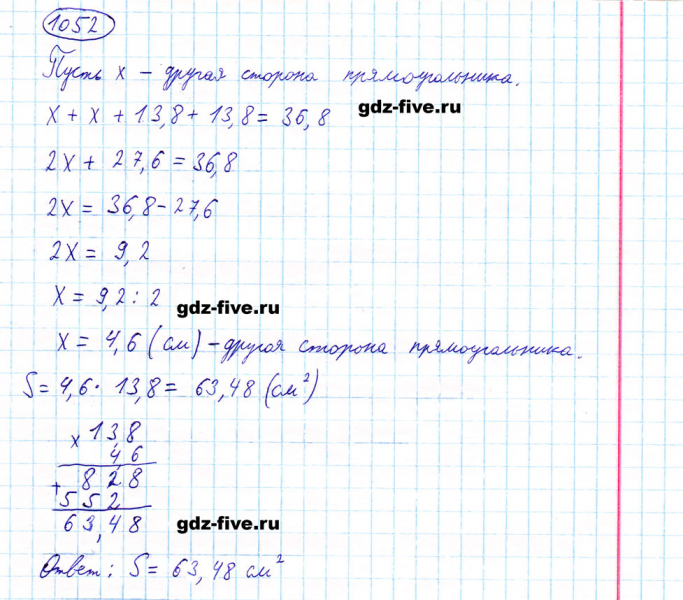 1052
Пусть x – другая сторона прямоугольника.
x + x + 13,8 + 13,8 = 36,8
gdz-five.ru
2x + 27,6 = 36,8
2x = 36,8 - 27,6
2x = 9,2
x = 9,2 : 2
gdz-five.ru
x = 4,6 (см) – другая сторона прямоугольника.
S = 4,6 · 13,8 = 63,48 (см²)
x 13,8
4,6
+ 828
552
63,48
gdz-five.ru
Ответ: S = 63,48 см²